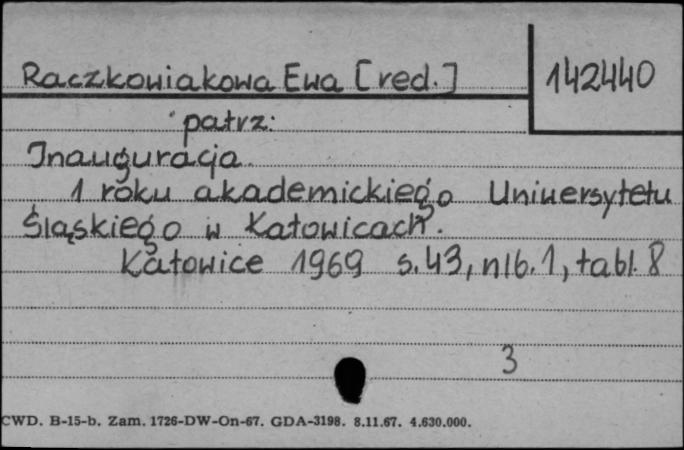 Raczkowiakowa Ewa [red.]
142440
patrz:
Inauguracja
1 roku akademickiego Uniwersytetu
Śląskiego w Katowicach.
Katowice 1969 s.43, nlb.1, tabl. 8
3
CWD. B-15-b. Zam. 1726-DW-On-67. GDA-3198. 8.11.67. 4.630.000.